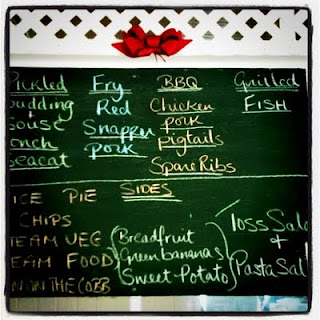 Pickled
Pudding
+
Souse
onch
Seacat
Fry
Red
Snapper
pork
BBQ
Chicken
pork
pigtails
Spare Ribs
Grilled
FISH
SIDES
ICE PIE
CHIPS
TEAM VEG
EAM FOOD
N IN THE COBB
Breadfruit
Green bananas
Sweet Potato
Toss Sala
+
Pasta Sal